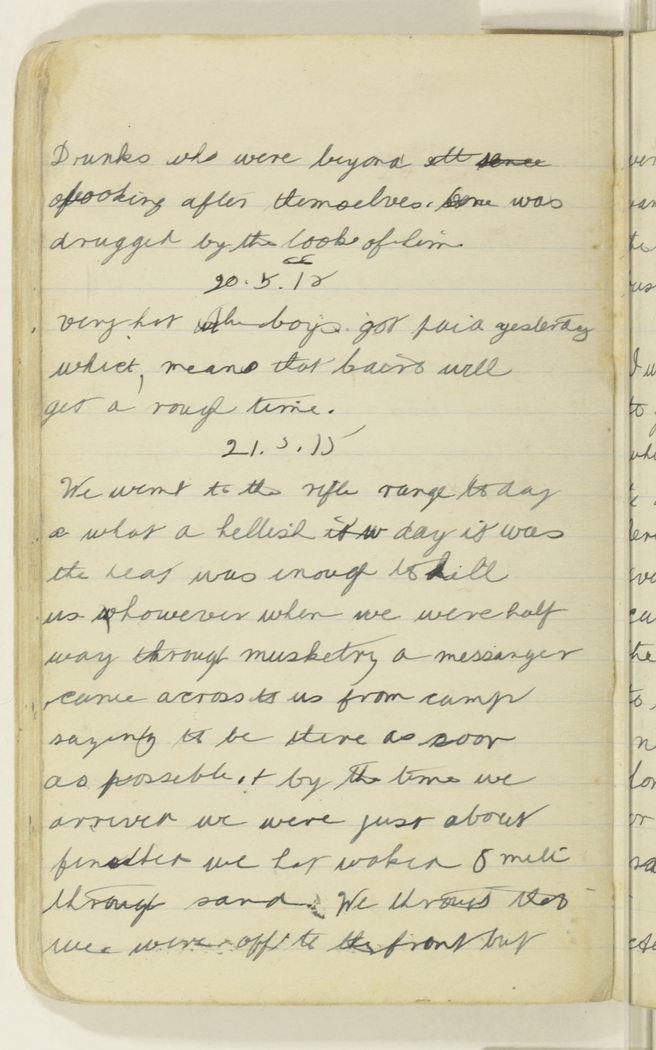 Drunks who were beyond
looking after themselves. One was
drugged by the look of him
20.5.15
very hot the boys got paid yesterday
which, means that Cairo will
get a rough time.
21.5.15
We went to the rifle range today
& what a hellish day it was
the heat was enough to kill
us however when we were half
way through musketry a messanger
came across to us from camp
saying to be there as soon
as possible. & by the time we
arrived we were just about
finished we had walked 5 mile
through sand. We thought that
we were off to the front but